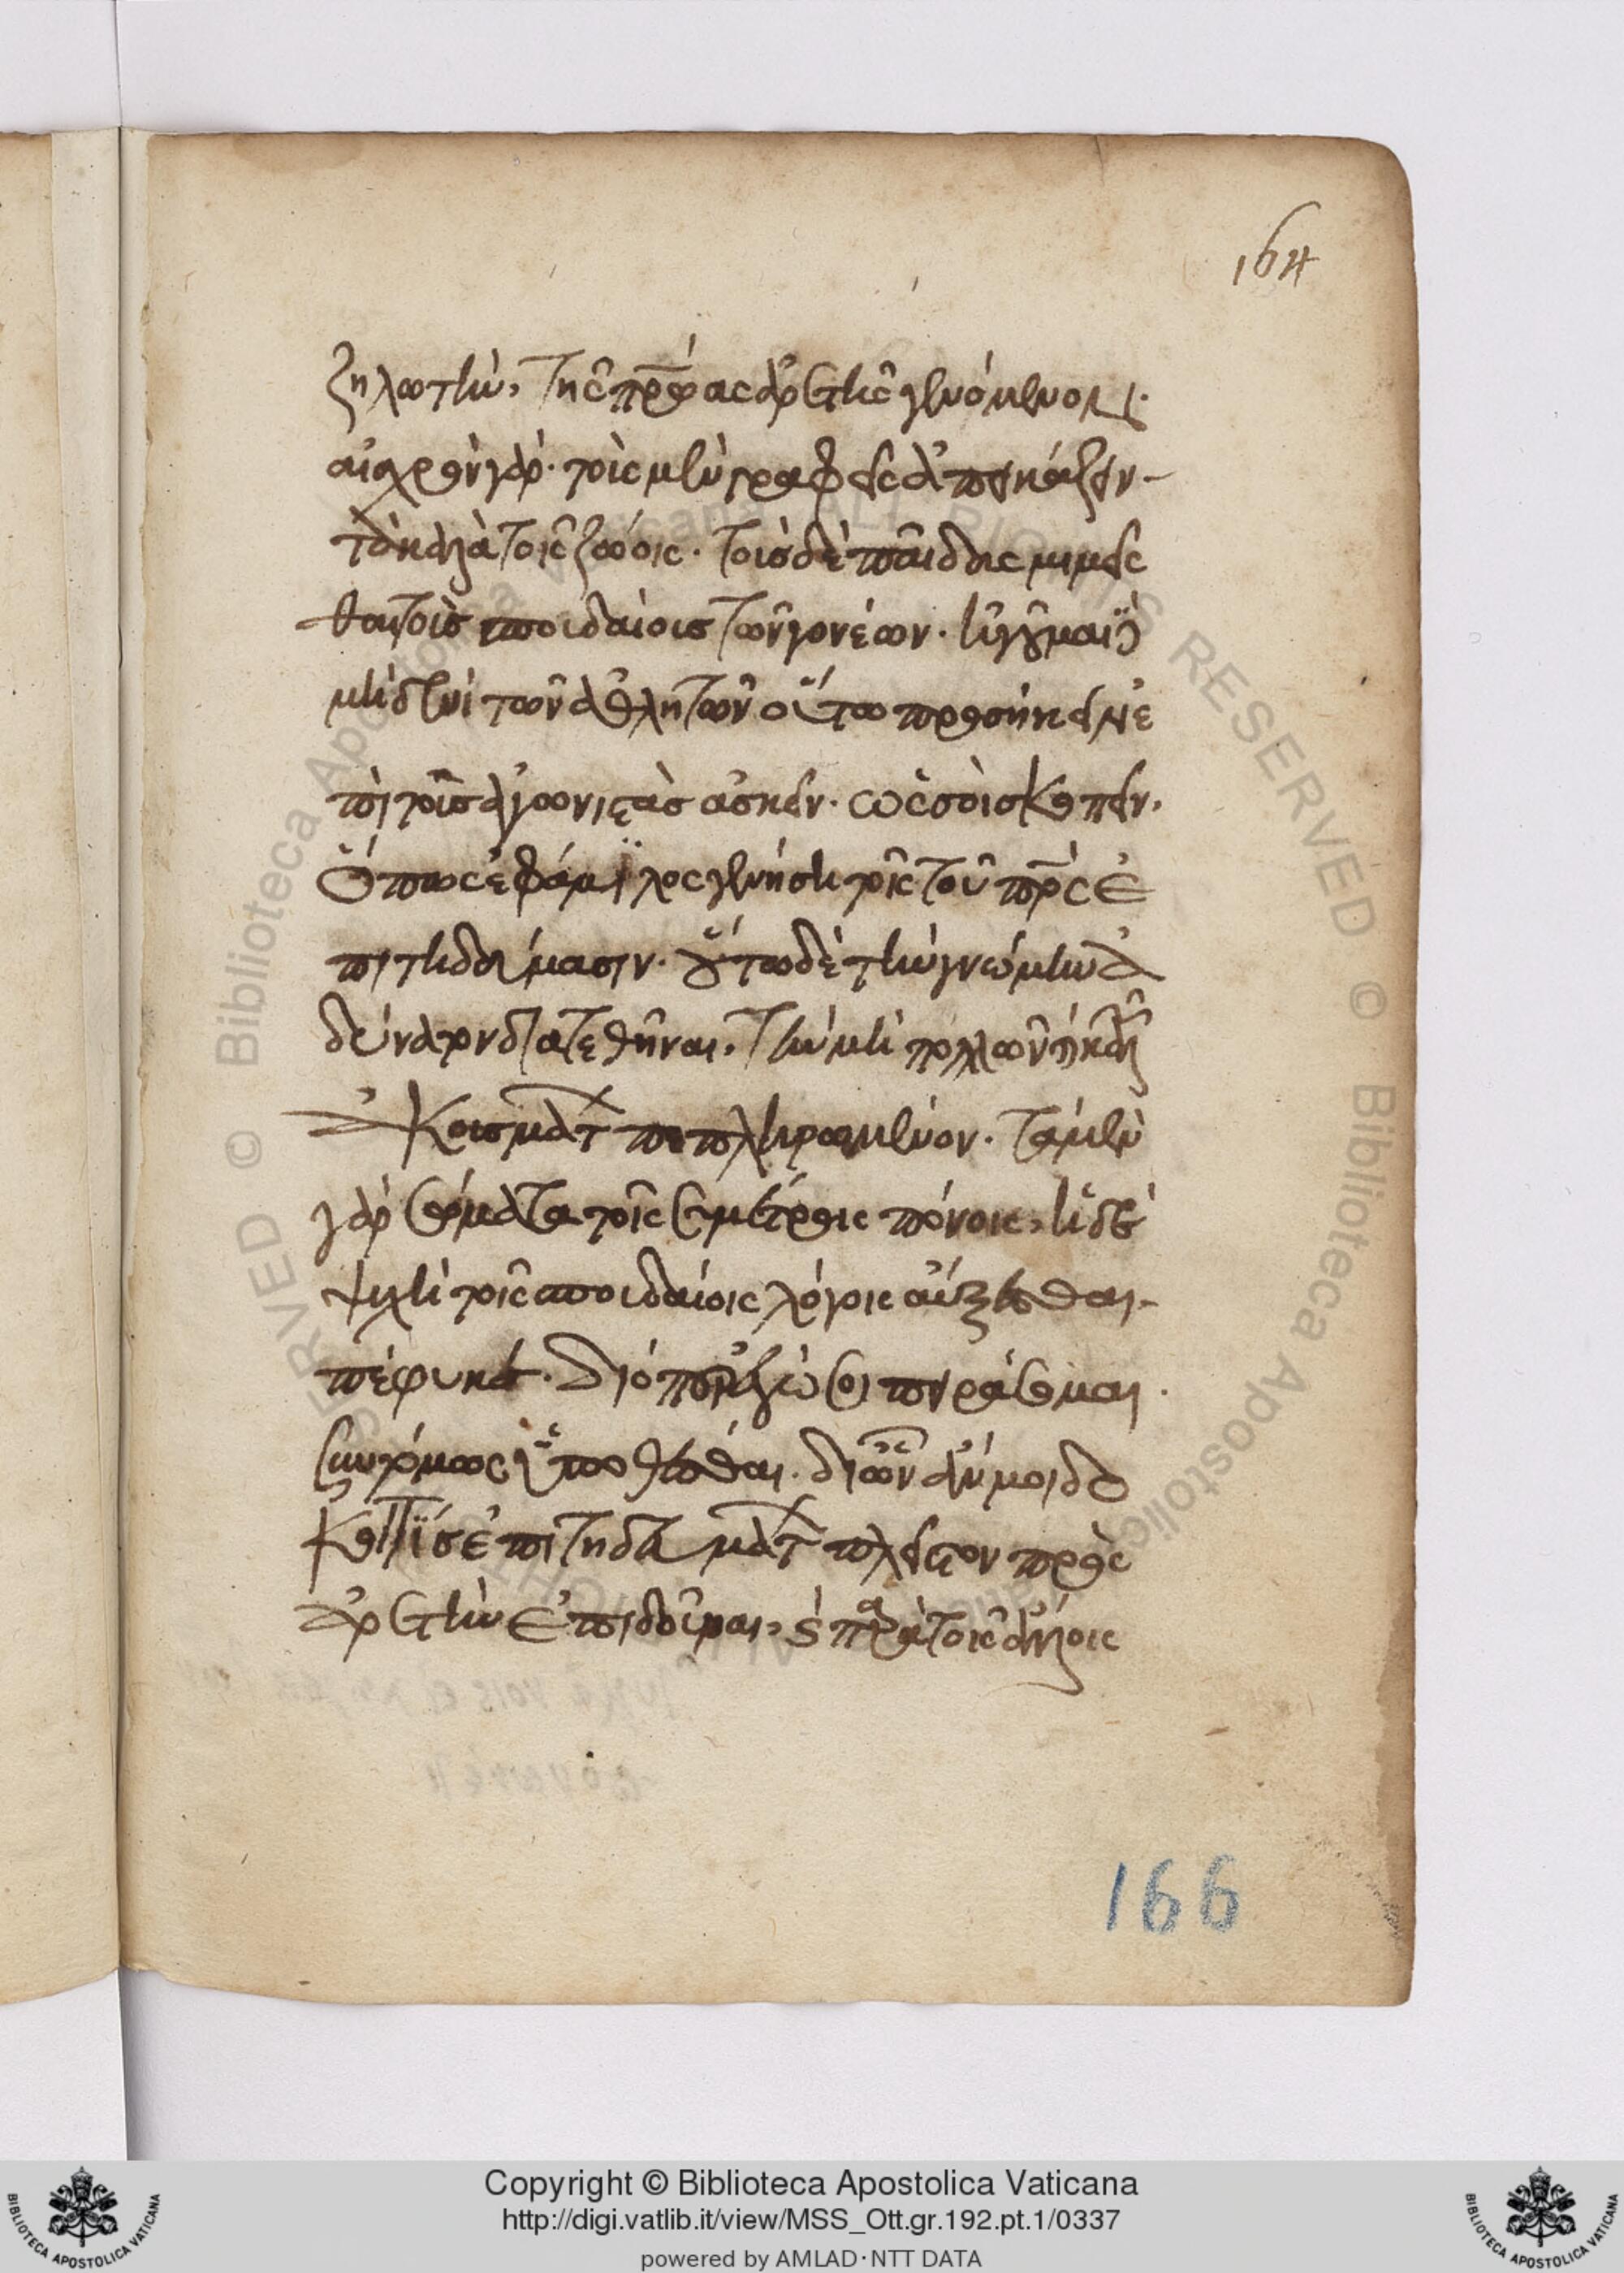 ζηλωτὴν, τῆς πρ̅ώας ἀρετῆς γενόμενον.
αἰσχρὸν γὰρ τοὺς μὲν γραφεῖς ἀπεικάζειν
τὰ καλὰ τοῖς ζώοις. τοὺς δὲ παῖδας μιμεῖσ
θαι τοὺς σπουδαίους τῶν γονέων. ἡγοῦμαι δὲ
μηδενὶ τῶν ἀθλητῶν οὕτω προσήκειν ἐ
πὶ τοὺς ἀγωνιστὰς ἀσκεῖν. ὡς σοὶ σκοπεῖν,
ὅπως ἐφάμιλος γενήση τοῖς τοῦ πρ̅ς ἐ
πιτηδεύμασιν. οὕτω δὲ τὴν γνώμην ἀ
δύνατον διατεθῆναι, τὴν μὴ πολλῶν καὶ καλῶν
ἀκουσμάτ πεπληρωμένον. τὰ μὲν
γὰρ σώματα τοῖς συμέτροις πόνοις, ἡ δὲ
ψυχὴ τοῖς σπουδαίοις λόγοις αὔξεσθαι
πέφυκε. διόπερ ἐγώ σοι πειράσομαι
συντόμως ὑποθέσθαι. δι ὧν ἄν μοι δο
κοίης ἐπιτηδευμάτ πλεῖστον πρὸς
ἀρετὴν ἐπιδοῦναι, καὶ παρὰ τοῖς ἄλλοις
164
166
Copyright © Biblioteca Apostolica Vaticana
http://digi.vatlib.it/view/MSS_Ott.gr.192.pt.1/0337
powered by AMLAD·NTT DATA